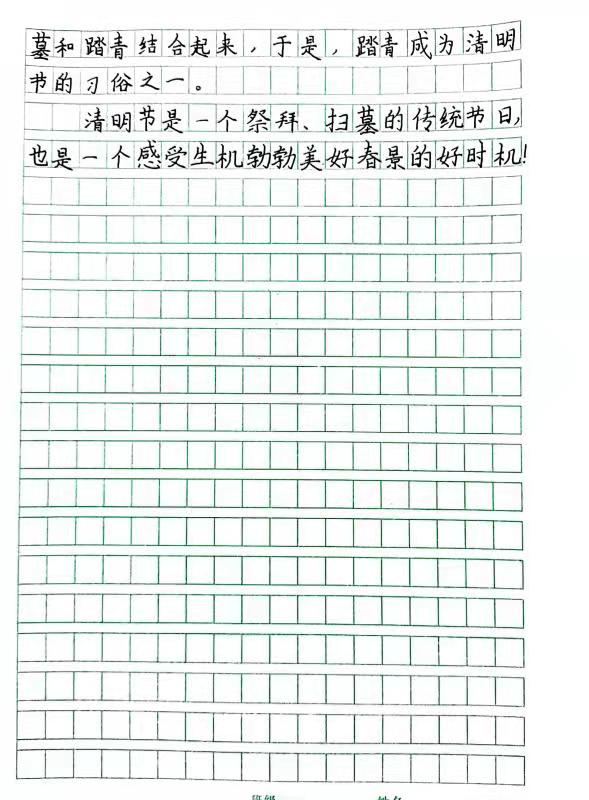 墓和踏青结合起来，于是，踏青成为清明
节的习俗之一。
清明节是一个祭拜、扫墓的传统节日，
也是一个感受生机勃勃美好春景的好时机！
班级 姓名